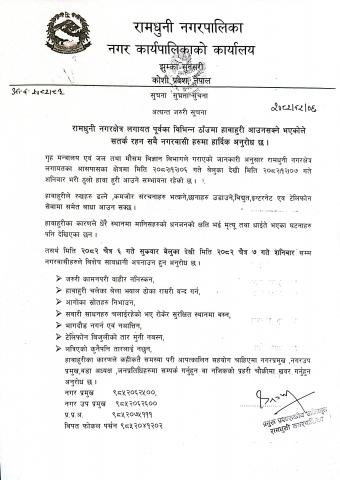 रामधुनी नगरपालिका
नगर कार्यपालिकाको कार्यालय
झुम्का सुनसरी
कोशी प्रदेश, नेपाल
सूचना सूचना सूचना
अत्यन्त जरुरी सूचना
रामधुनी नगरक्षेत्र लगायत पूर्वका विभिन्न ठाँउमा हावाहुरी आउनसक्ने भएकोले
सतर्क रहन सबै नगरवासी हरुमा हार्दिक अनुरोध छ ।
गृह मन्त्रालय एवं जल तथा मौसम विज्ञान विभागले गराएको जानकारी अनुसार रामधुनी नगरक्षेत्र
लगायतका आसपासका क्षेत्रमा मिति २०८२१२०६ गते बेलुका देखी मिति २०८२१२०७ गते
शनिवार भरी ठुलो हावा हुरी आउने सम्भावना रहेको छ ।
हावाहुरीले रुखहरु ढल्ने ,कमजोर संरचनाहरु भत्कने,छानाहरु उडाउने,बिद्युत,इन्टरनेट एवं टेलिफोन
सेवामा समेत बाधा आउन सक्छ ।
हावाहुरीका कारणले धेरै स्थानमा मानिसहरुको धनजनको क्षति भई मृत्यू तथा घाईते भएका घटनाहरु
पनि देखिएका छन ।
तसर्थ मिति २०८२ चैत्र ६ गते सुक्रवार बेलुका देखी मिति २०८२ चैत्र ७ गते शनिबार सम्म
नगरबासीहरुले विशेष सावधानी अपनाउन हुन अनुरोध छ ।
➢ जरुरी कामनपरी वाहीर ननिस्कन,
➢ हावाहुरी चलेका बेला भ्याल ढोका राम्ररी वन्द गर्न,
➢ आगोका स्रोतहरु निभाउन,
➢ सवारी साधनहरु चलाईरहेको भए रोकेर सुरक्षित स्थानमा बस्न,
➢ भागदौड नगर्न एवं नआत्तिन,
➢ टेलिफोन बिजुलीको तार मुनी नवस्न,
➢ लत्रिएको कुनैपनि तारलाई नछुन,
हावाहुरीका कारणले कहीकतै समस्या परी आपत्कालिन सहयोग चाहिएमा नगरप्रमुख ,नगरउप
प्रमुख,वडा अध्यक्ष ,जनप्रतिधिहरुमा सम्पर्क गर्नुहुन वा नजिकको प्रहरी चौकीमा खवर गर्नुहुन
अनुरोध छ ।
नगर प्रमुख ९८५२०६२५००,
नगर उप प्रमुख ९८५२०६२६००
प्र.प्र.अ. ९८५२०७५१११
विपत फोकल पर्सन ९८५२०४१२०२